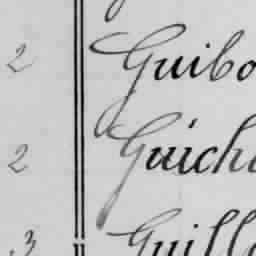 2 Guibo
2 Guich
3 Guill